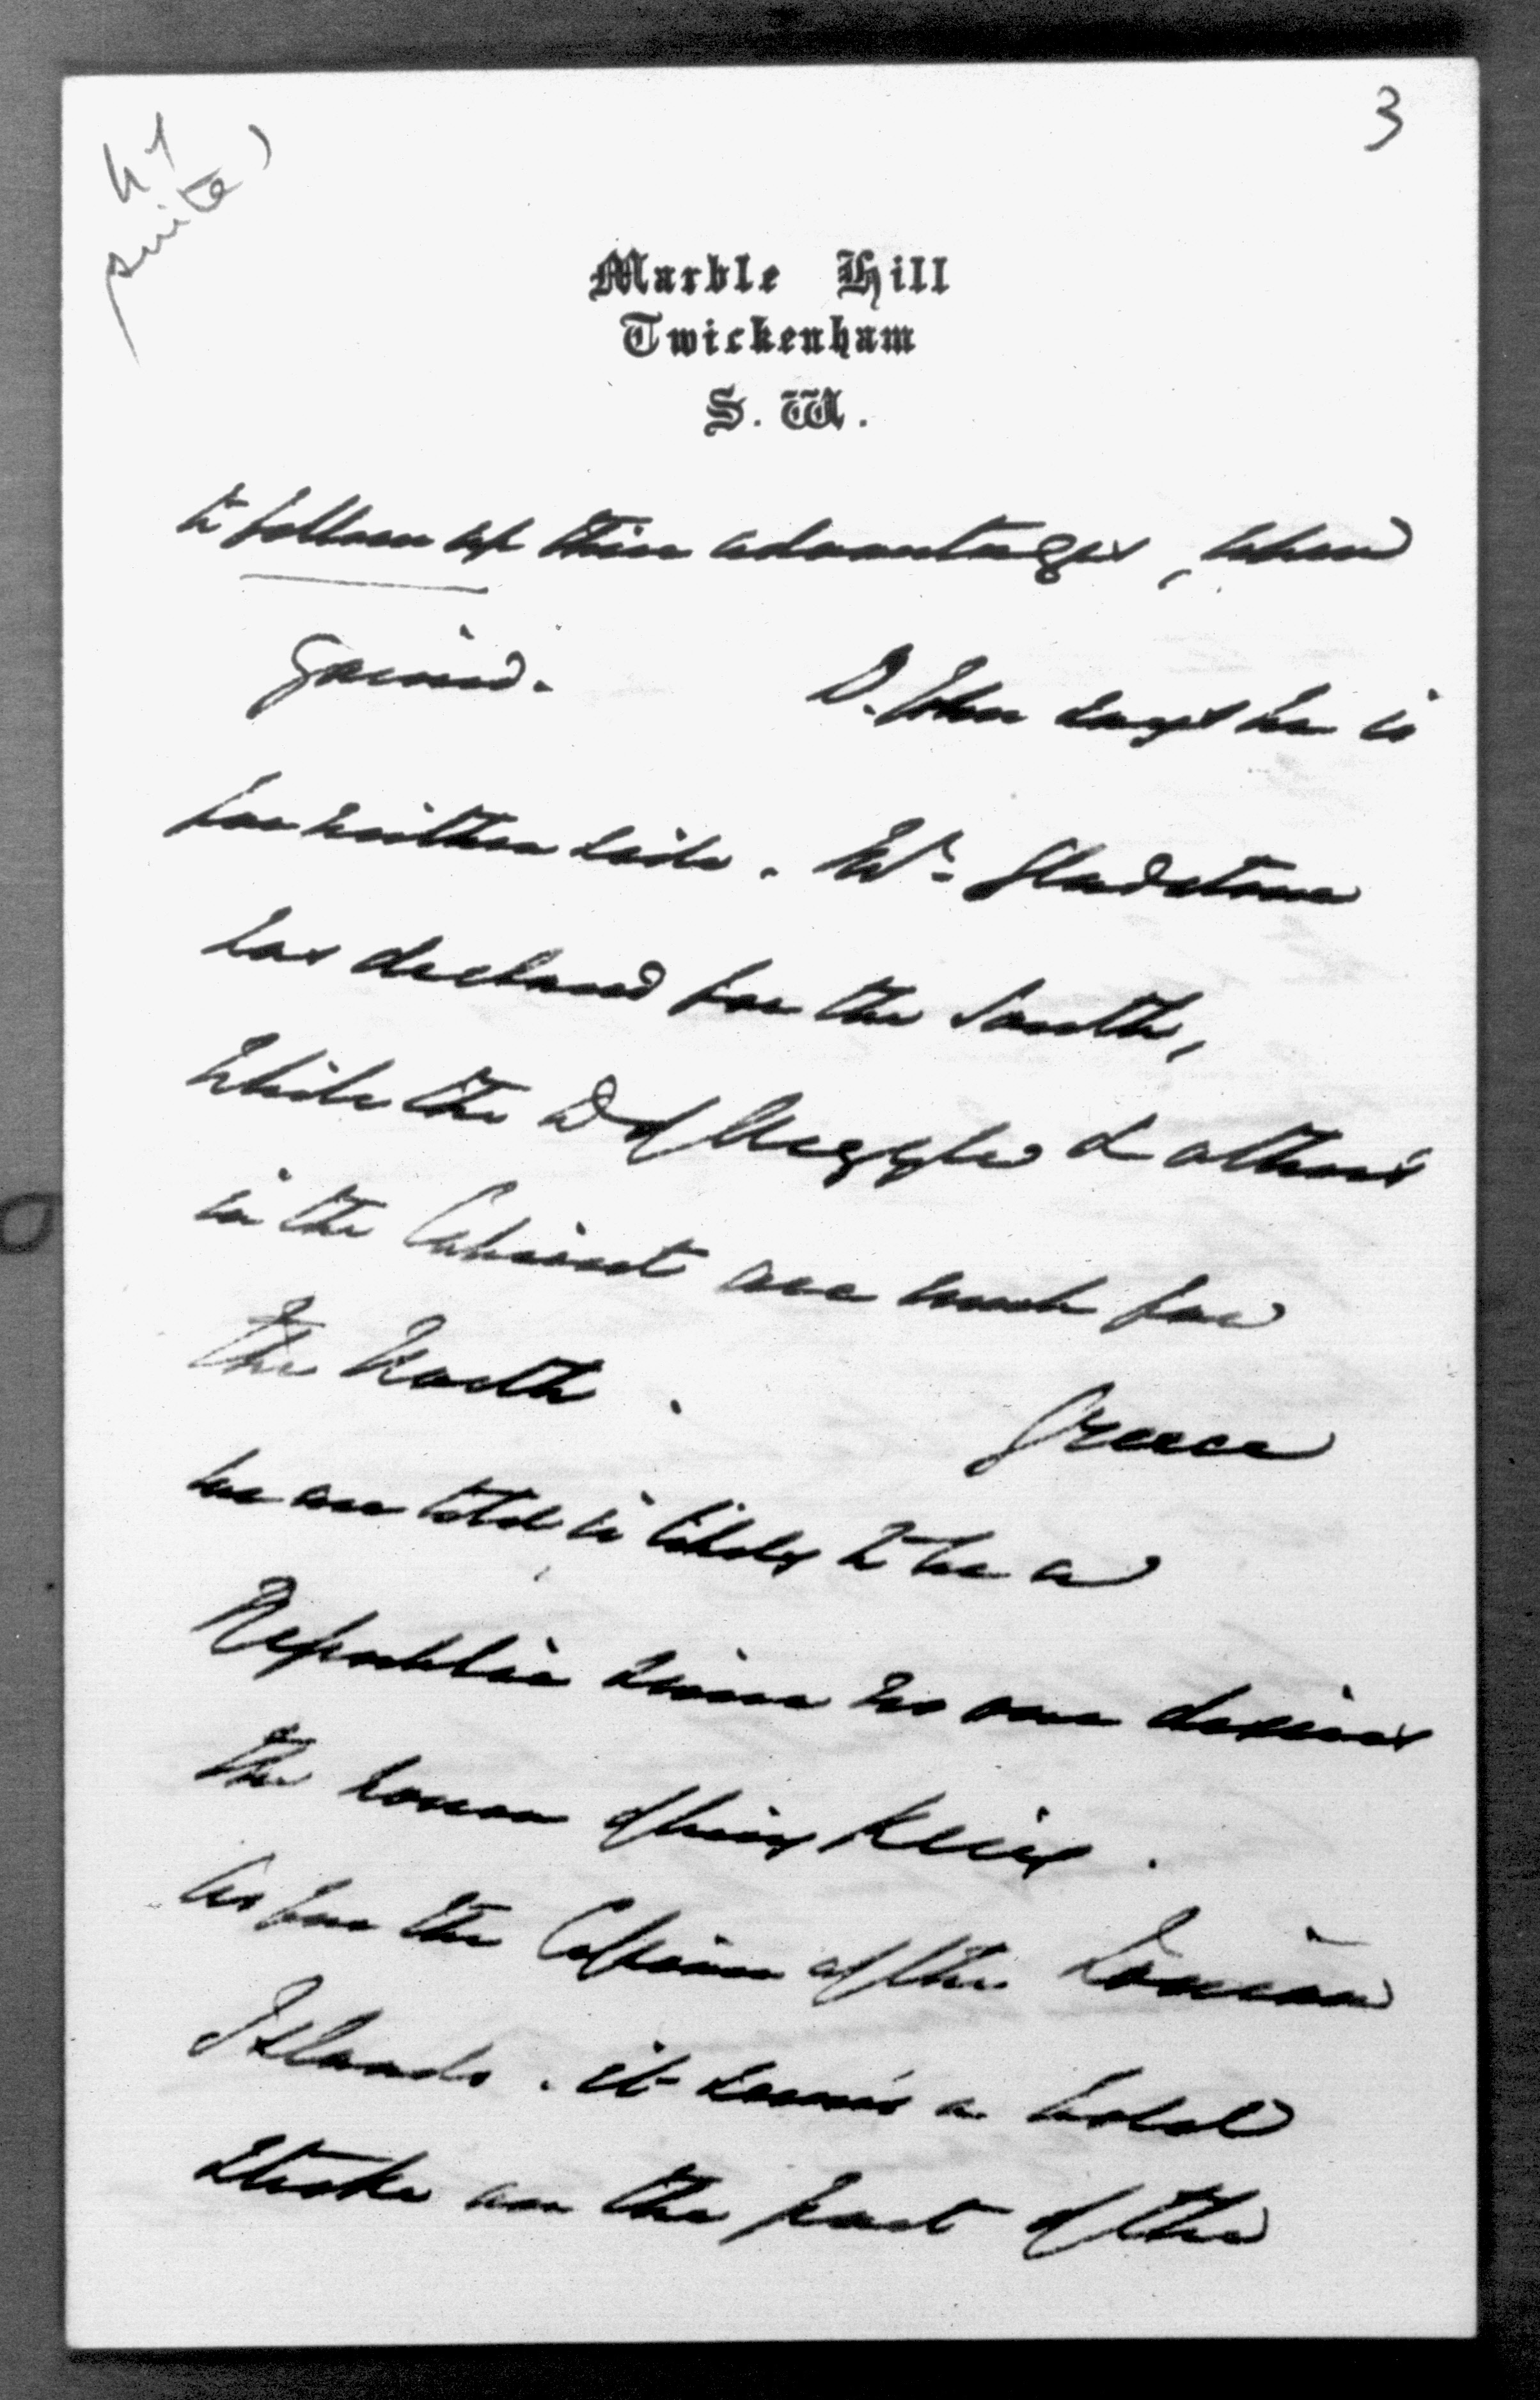 3
suite)
Marble Hill
Twickenham
S. W.
to follow up their advantages, when
gained. D. John says he is
for neither side. Mr. Gladstone
has declared for the South,
While the D of Argyle & others
in the Cabinet are much for
the North. Greece
we are told is likely to be a
Republic since no one desires
the honor of being King.
As for the Cession of the Ionian
Islands. it seems a bold
stroke on the part of the